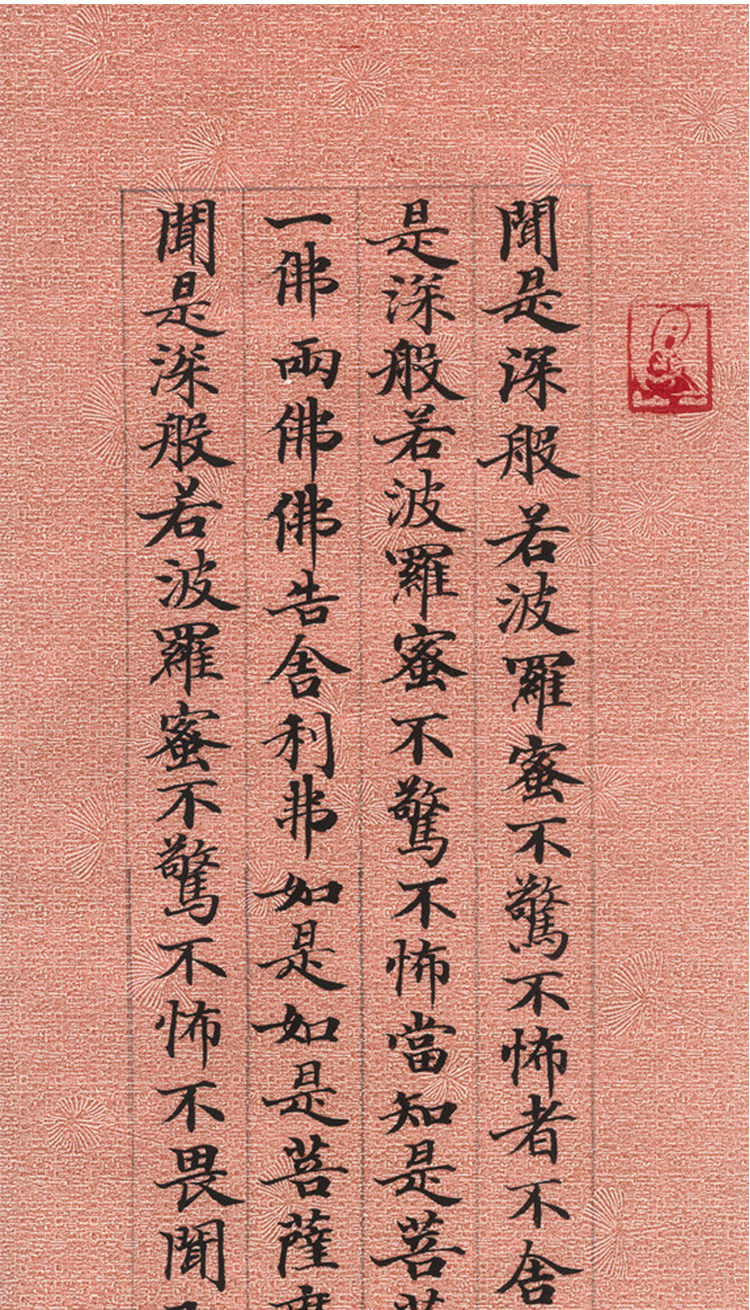 聞是深般若波羅蜜不驚不怖者不舍
是深般若波羅蜜不驚不怖當知是菩
一佛兩佛佛告舍利弗如是如是菩薩
聞是深般若波羅蜜不驚不怖不畏聞